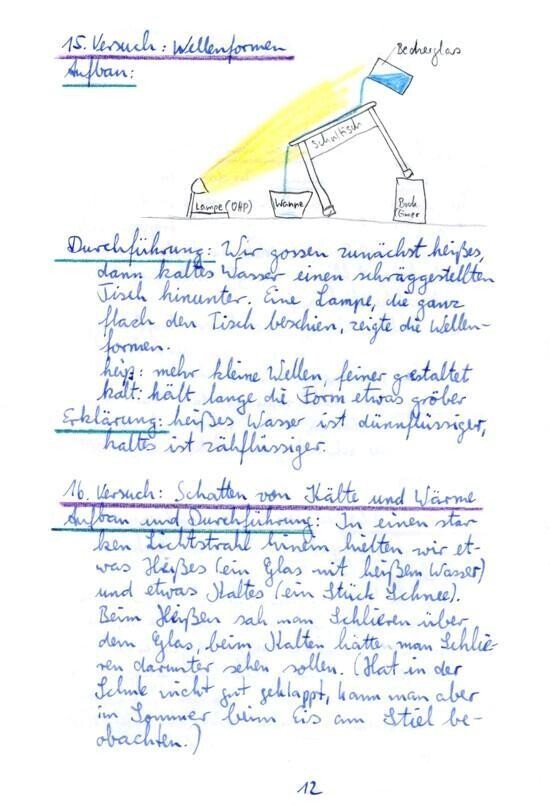 15. Versuch: Wellenformen
Aufbau:
Becherglas
Schultisch
Lampe (OHP)
Wanne
Bock
Eimer
Durchführung: Wir gossen zunächst heißes,
dann kaltes Wasser einen schräggestellten
Tisch hinunter. Eine Lampe, die ganz
flach den Tisch beschien, zeigte die Wellen-
formen.
heiß: mehr kleine Wellen, feiner gestaltet
kalt: hält lange die Form etwas gröber
Erklärung: heißes Wasser ist dünnflüssiger,
kaltes ist zähflüssiger.
16. Versuch: Schatten von Kälte und Wärme
Aufbau und Durchführung: In einen star
ken Lichtstrahl hinein hielten wir et-
was Heißes (ein Glas mit heißem Wasser)
und etwas Kaltes (ein Stück Schnee).
Beim Heißen sah man Schlieren über
dem Glas, beim Kalten hätte man Schlie-
ren darunter sehen sollen. (Hat in der
Schule nicht gut geklappt, kann man aber
im Sommer beim Eis am Stiel be-
obachten.)
12